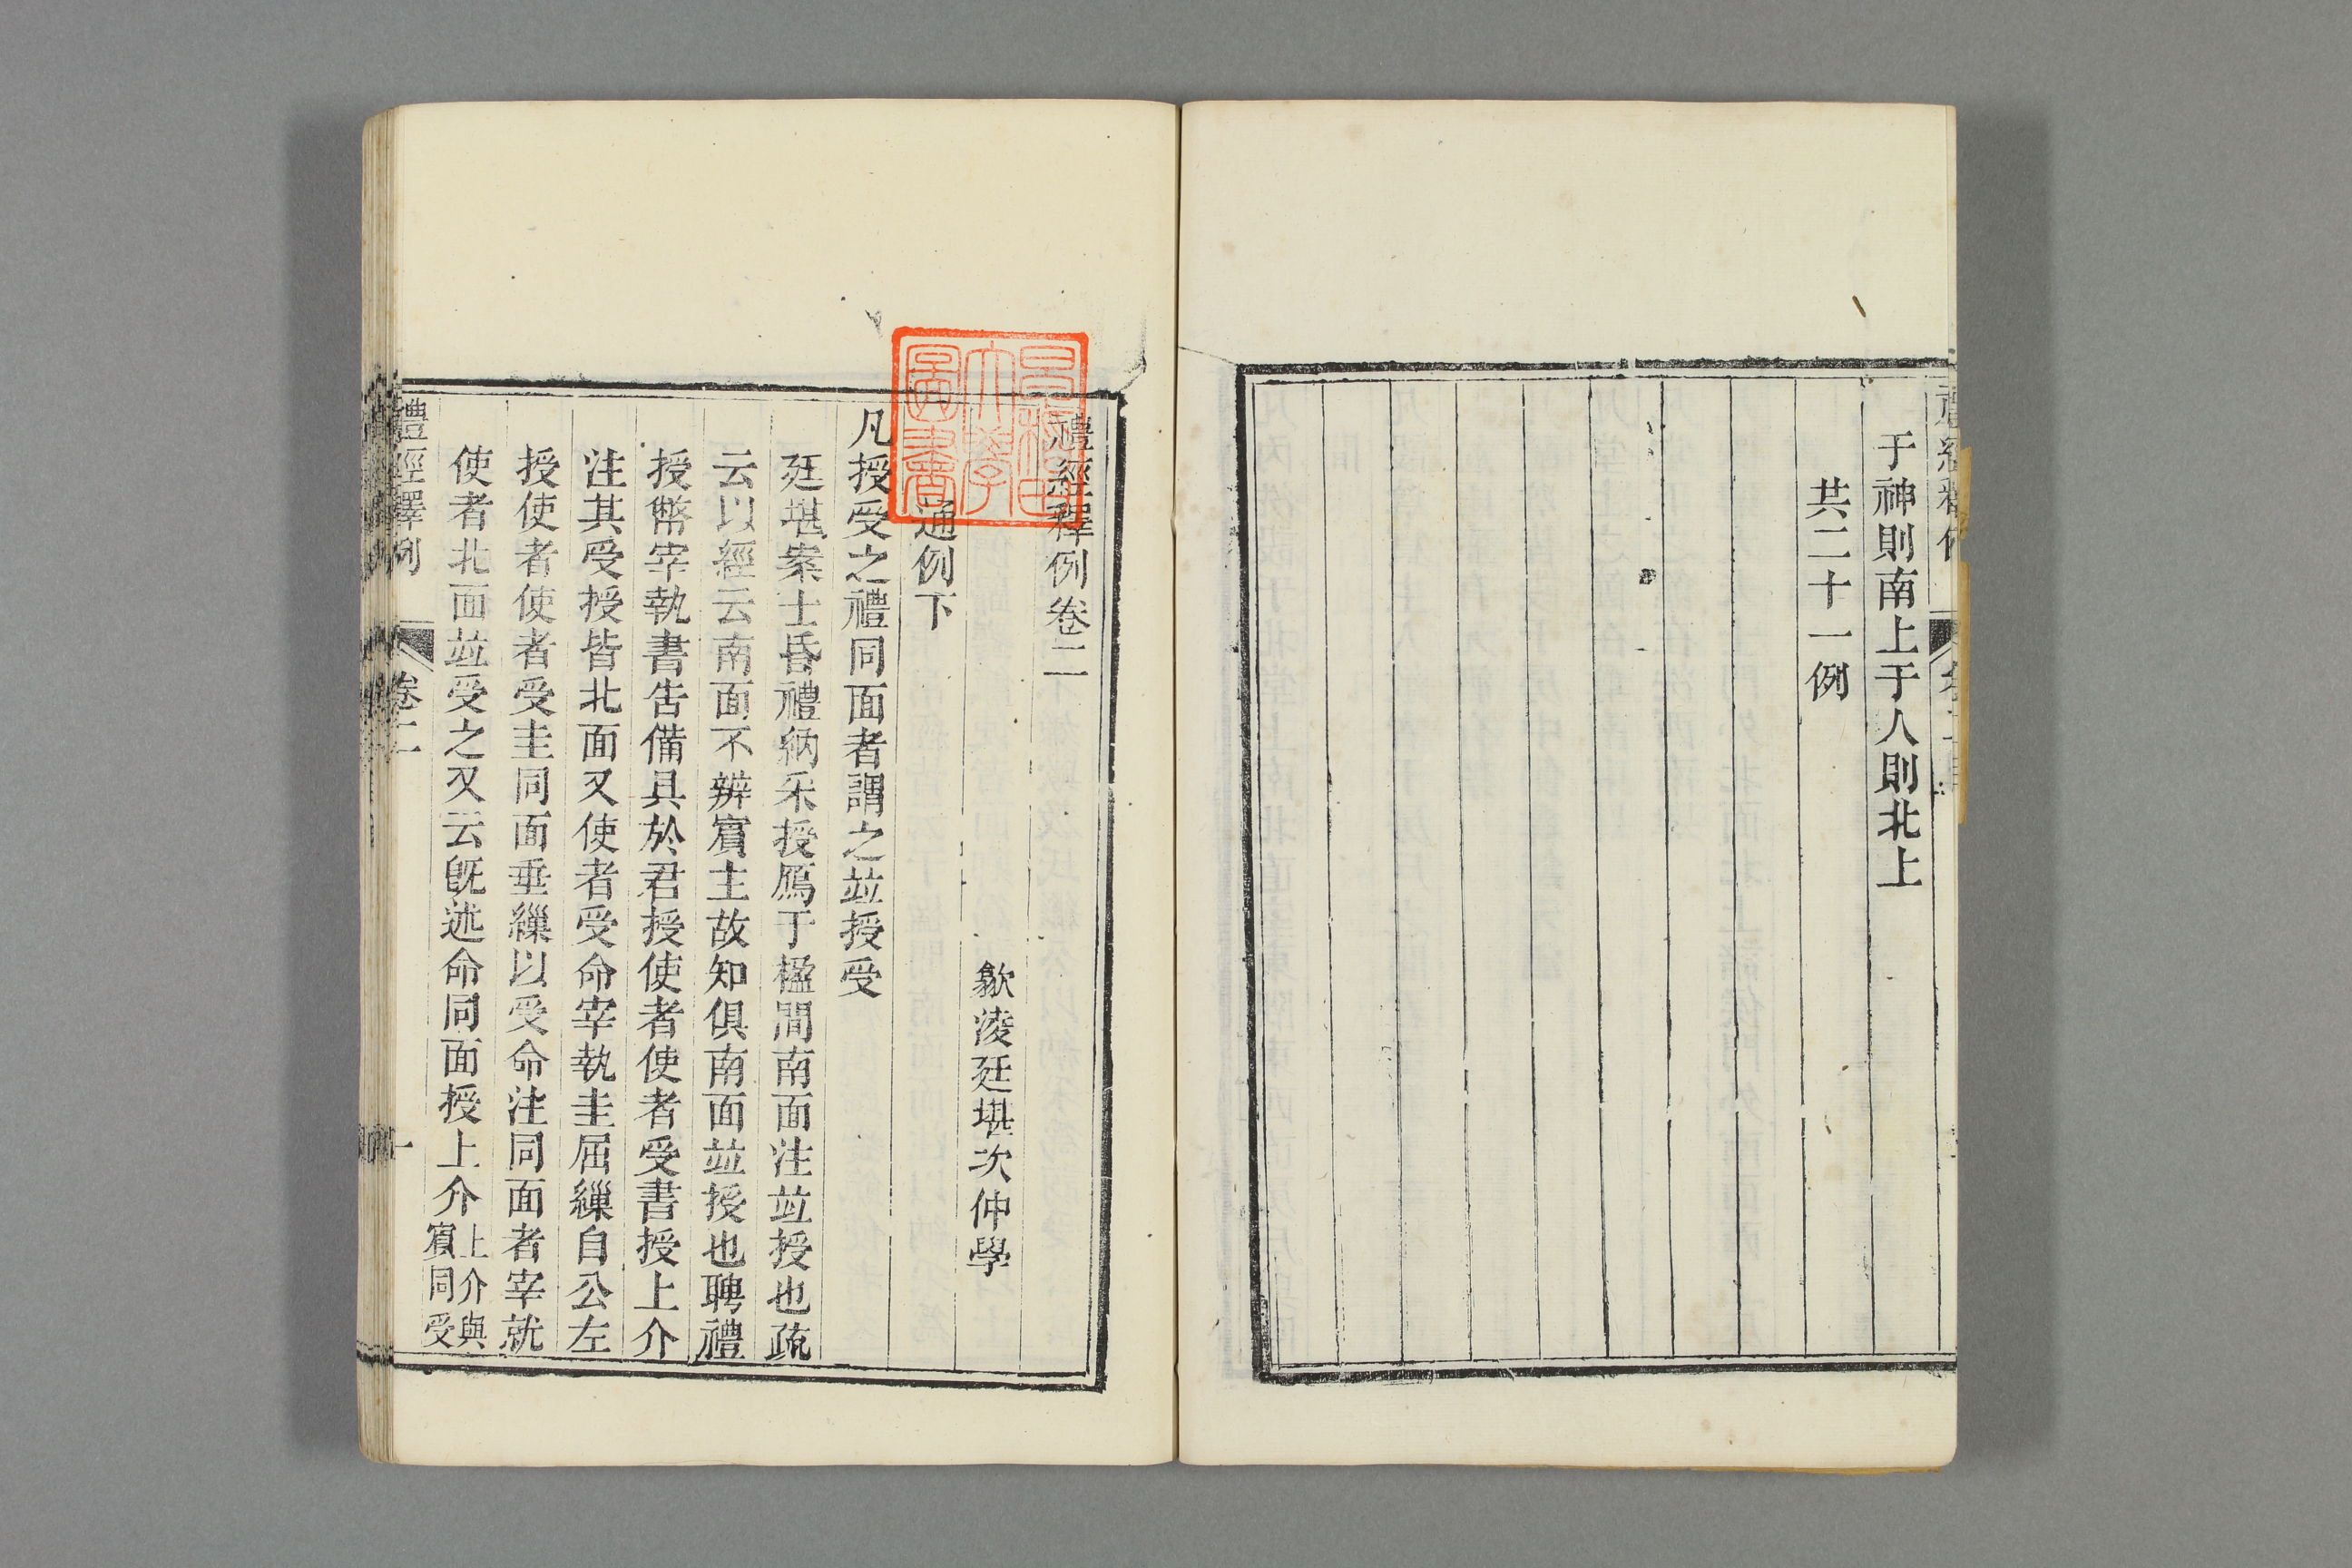 于神則南上于人則北上
共二十一例
禮經釋例卷二
歙淩廷堪次仲學
通例下
凡授受之禮同面者謂之竝授受
廷堪案士昏禮納采授鴈于楹間南面注竝授也疏
云以經云南面不辨賓主故知俱南面竝授也聘禮
授幣宰執書告備具於君授使者使者受書授上介
注其受授皆北面又使者受命宰執圭屈繅自公左
授使者使者受圭同面垂繅以受命注同面者宰就
使者北面竝受之又云旣述命同面授上介上介與賓同受
禮經釋例 卷二 一
早稻田大學圖書